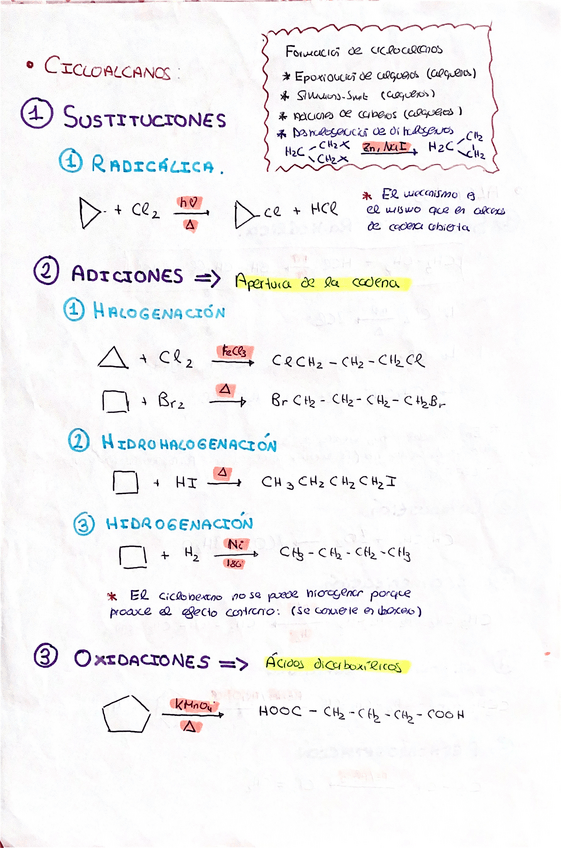 • CICLOALCANOS:
Formación de cicloalcanos
* Epoxidación de alquenos (alquenos)
* Simmons-Smit (alquenos)
* Adiciones de carbenos (alquenos)
* Deshalogenación de dihalógenos
H₂C CH₂X CH₂X Zn, NaI → H₂C CH₂ CH₂
① SUSTITUCIONES
① RADICÁLICA.
+ Cl₂ hν Δ → Cl + HCl
* El mecanismo es
el mismo que en alcanos
de cadena abierta
② ADICIONES => Apertura de la cadena
① HALOGENACIÓN
+ Cl₂ FeCl₃ → ClCH₂ - CH₂ - CH₂Cl
+ Br₂ Δ → BrCH₂ - CH₂ - CH₂ - CH₂Br
② HIDROHALOGENACIÓN
+ HI Δ → CH₃CH₂CH₂CH₂I
③ HIDROGENACIÓN
+ H₂ Ni 180 → CH₃-CH₂-CH₂-CH₃
* El ciclohexano no se puede hidrogenar porque
produce el efecto contrario: (se convierte en benceno)
③ OXIDACIONES => Ácidos dicarboxílicos
KMnO₄ Δ → HOOC - CH₂ - CH₂ - CH₂ - COOH